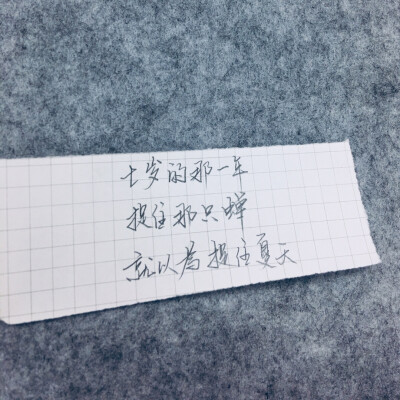 七岁的那一年
捉住那只蝉
就以為捉住夏天